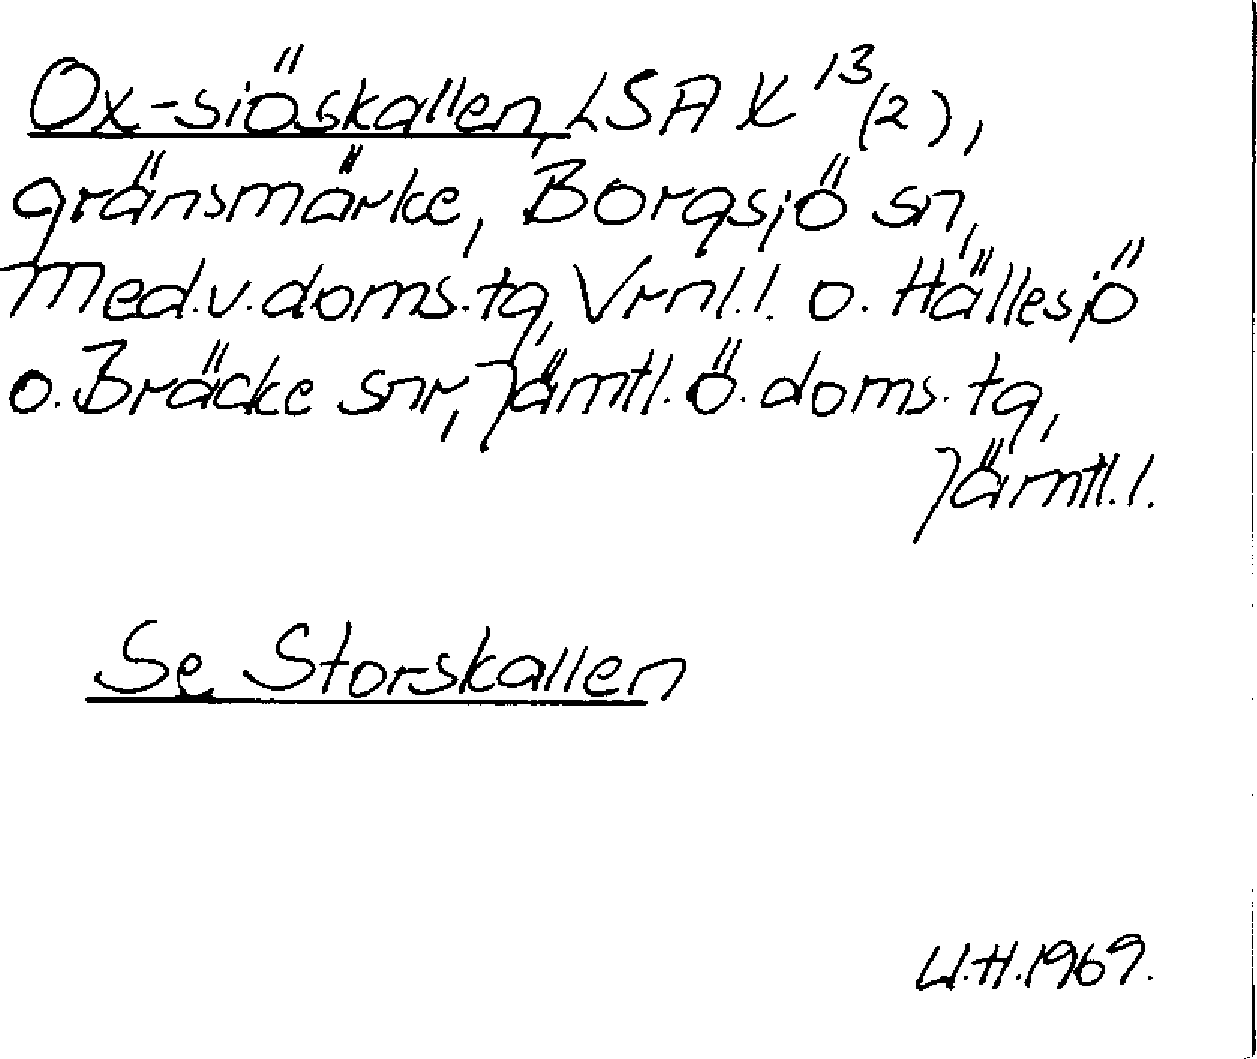 Ox-siöskallen, LSA X 13(2),
gränsmärke, Borgsjö sn,
Med.v.doms.tg, Vrnl.l. o. Hällesjö
o. Bräcke snr, Jämtl.ö.doms.tg,
Jämtl.l.
Se Storskallen
U.H.1969.